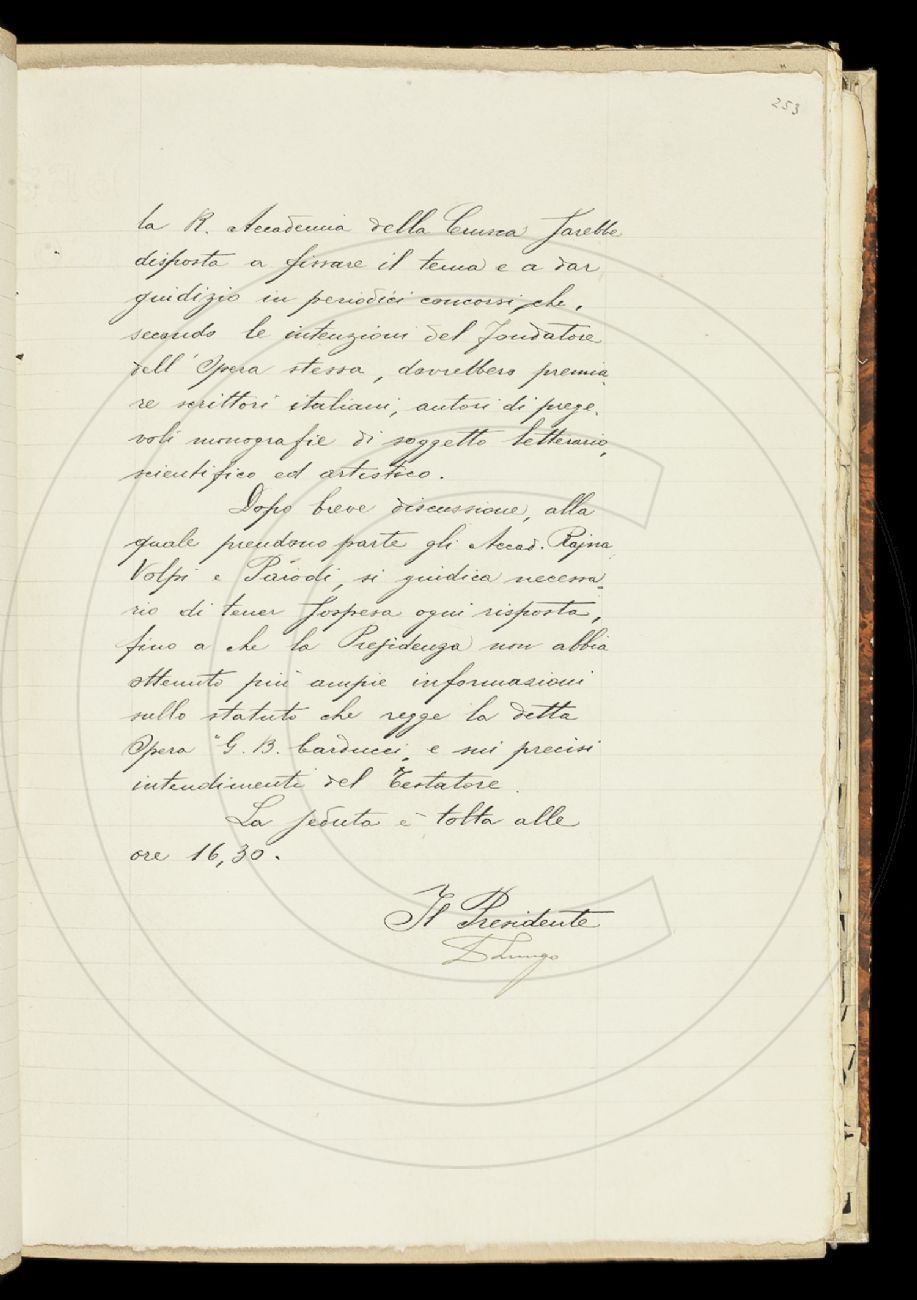 253
la R. Accademia della Crusca sarebbe
disposta a fissare il tema e a dar
giudizio in periodici concorsi, che,
secondo le intenzioni del fondatore
dell'Opera stessa, dovrebbero premia-
re scrittori italiani, autori di prege-
voli monografie di soggetto letterario,
scientifico ed artistico.
Dopo breve discussione, alla
quale prendono parte gli Accad. Rajna,
Volpi e Parodi, si giudica necessa-
rio di tener sospesa ogni risposta,
fino a che la Presidenza non abbia
ottenuto più ampie informazioni
sullo statuto che regge la detta
Opera "G. B. Carducci„ e sui precisi
intendimenti del Testatore.
La seduta è tolta alle
ore 16,30.
Il Presidente
DLungo